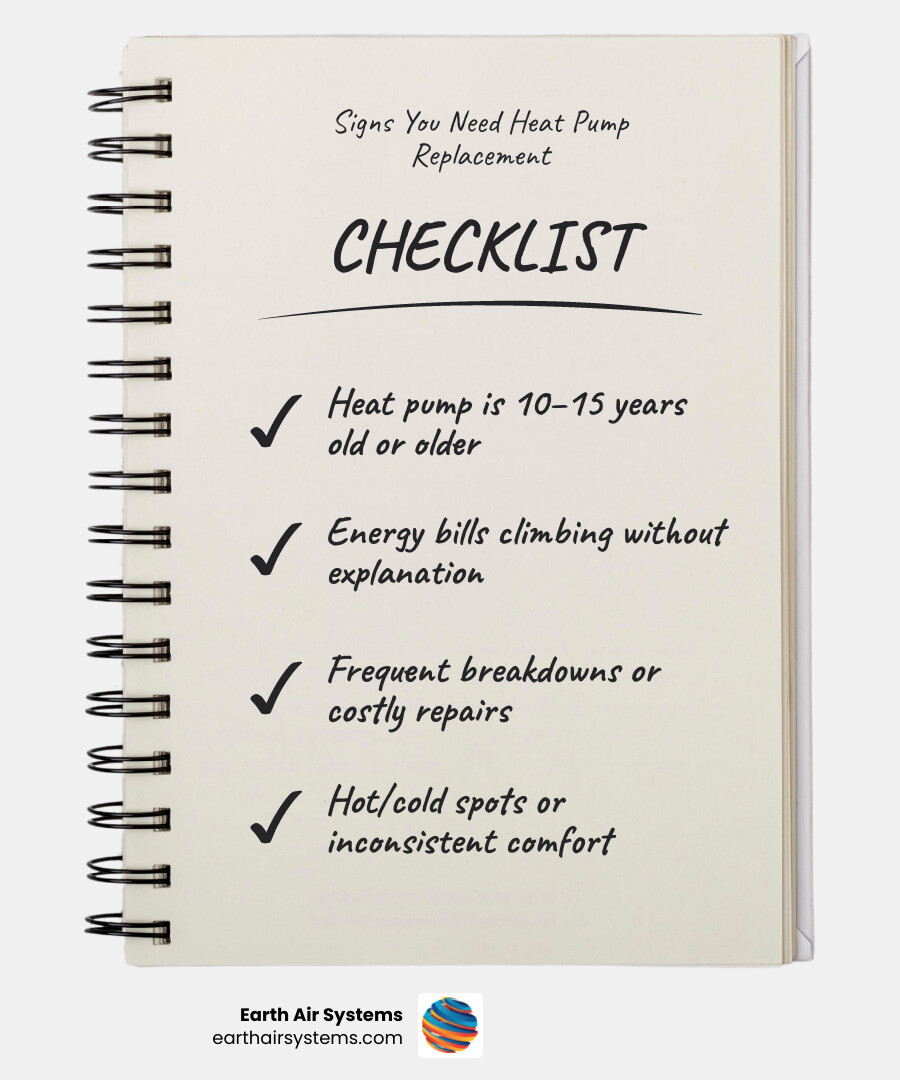 Signs You Need Heat Pump
Replacement
CHECKLIST
Heat pump is 10–15 years
old or older
Energy bills climbing without
explanation
Frequent breakdowns or
costly repairs
Hot/cold spots or
inconsistent comfort
Earth Air Systems
earthairsystems.com